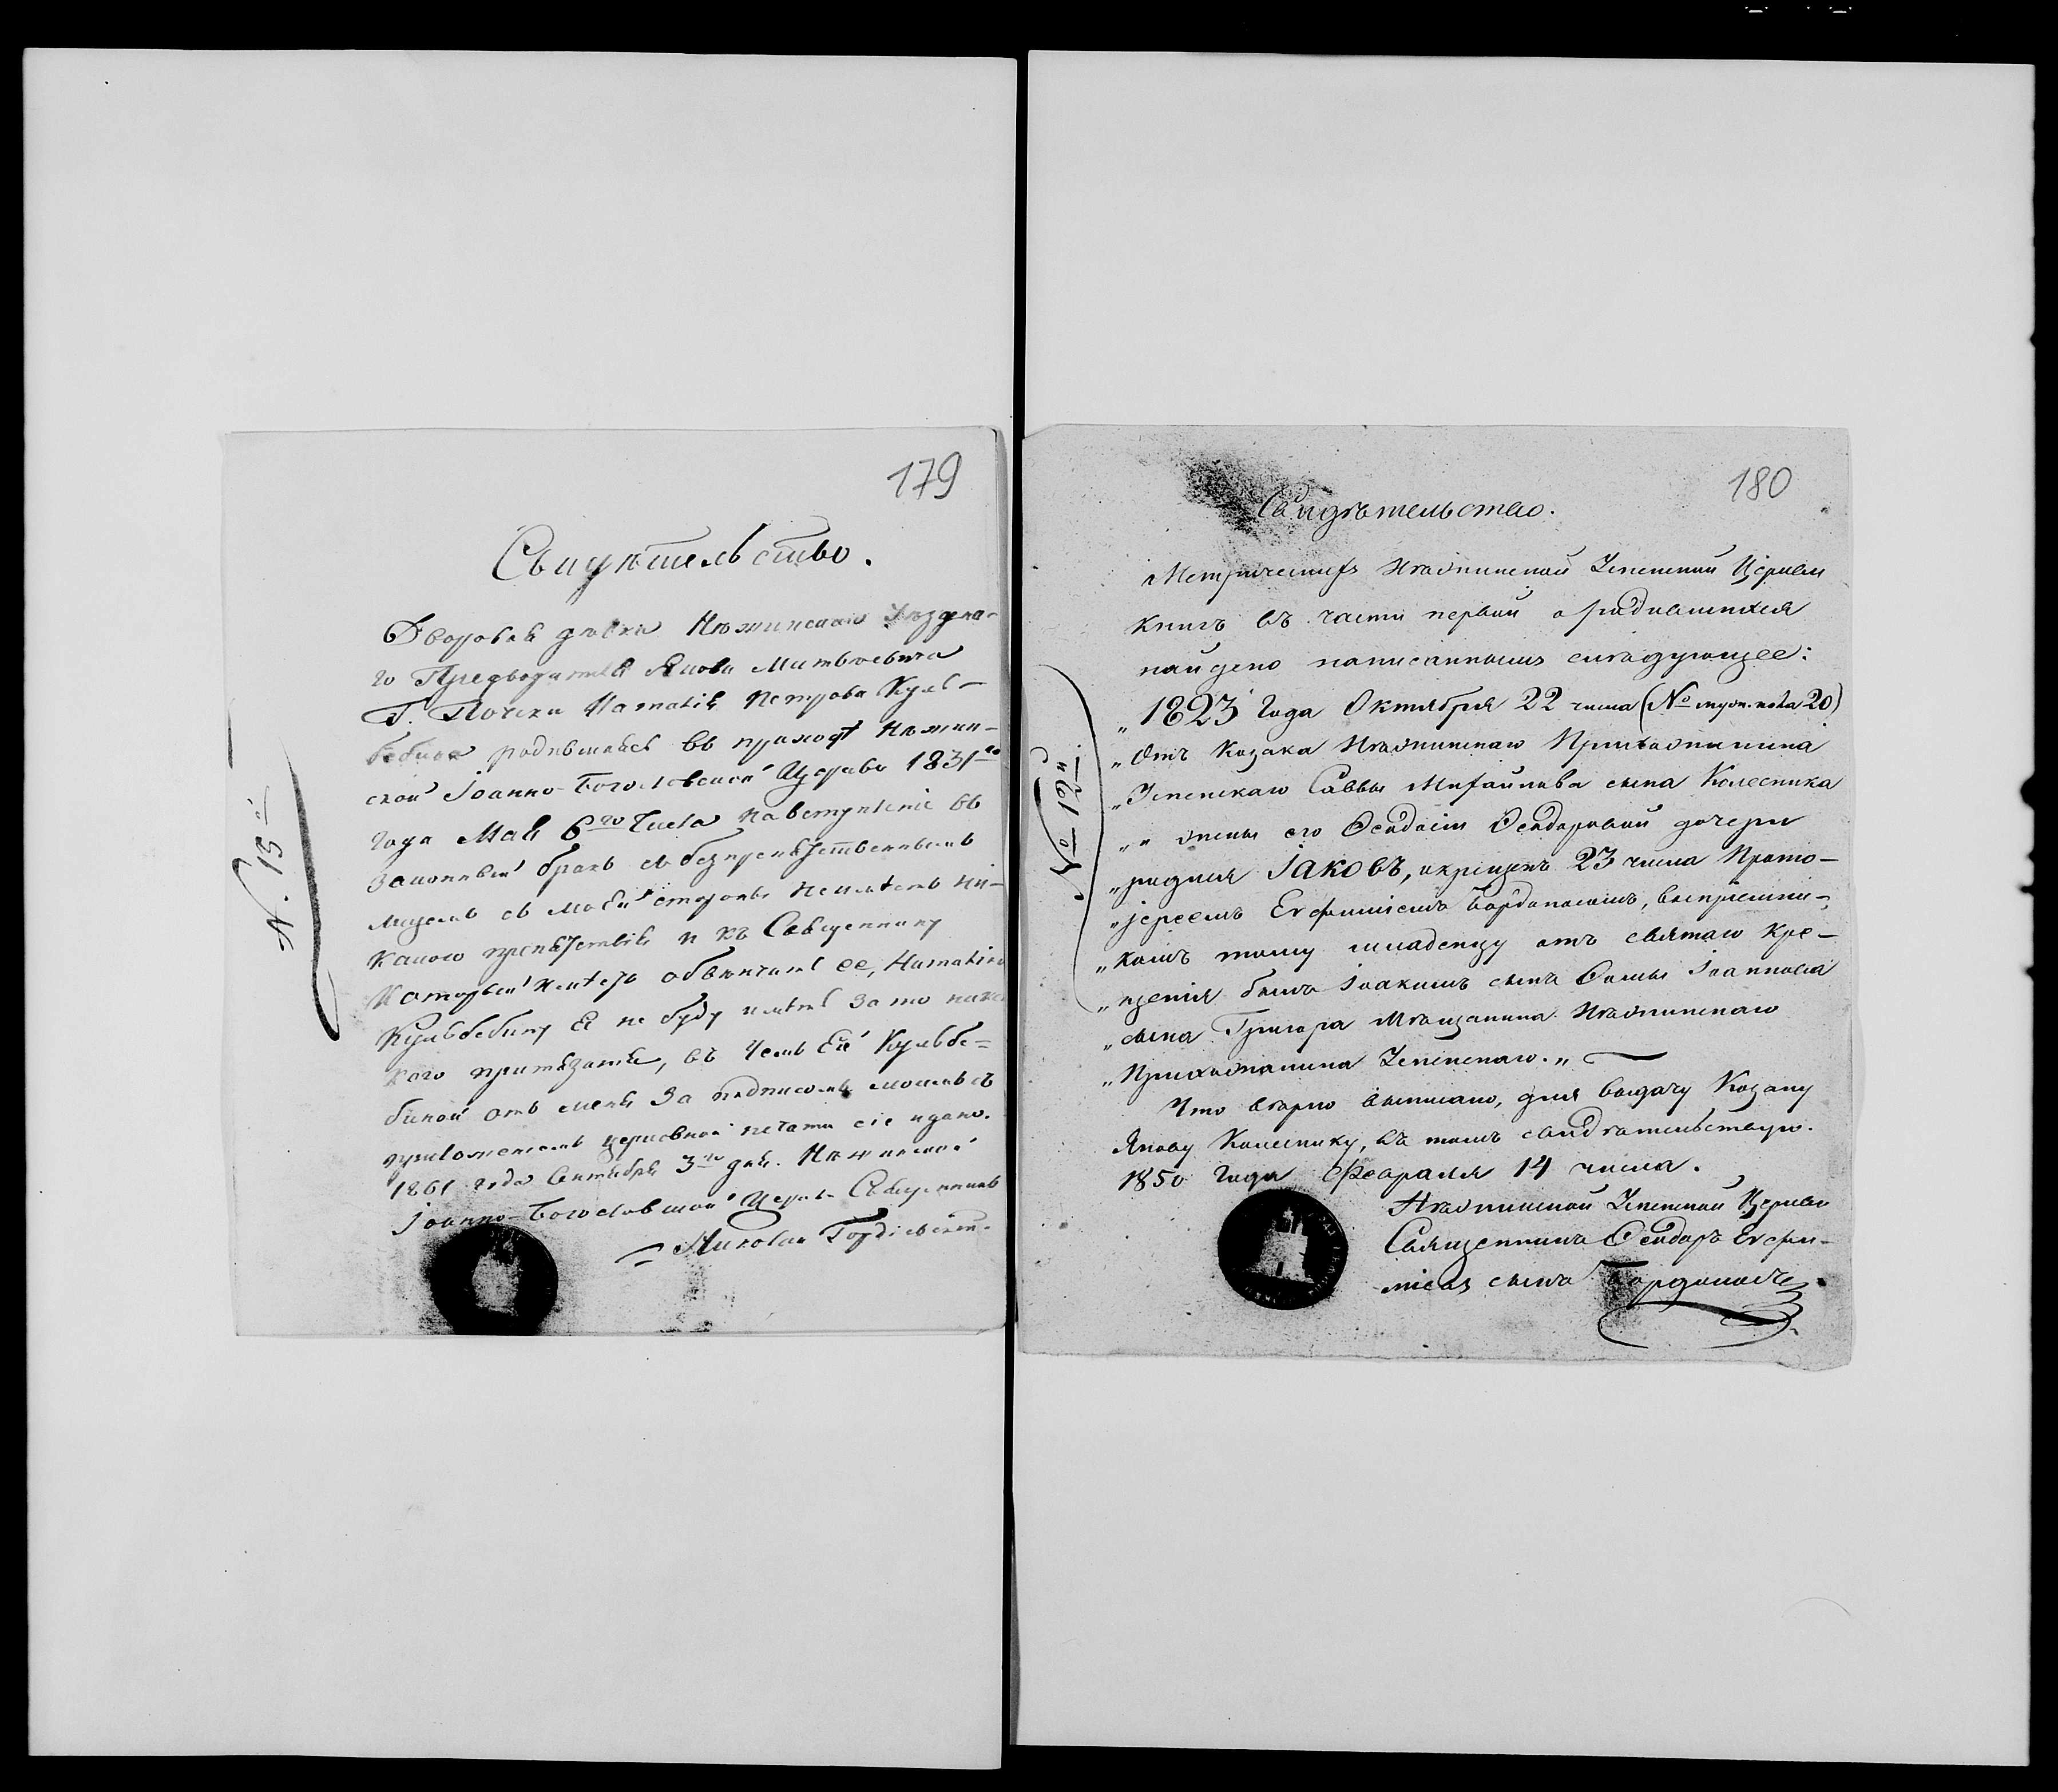 179
Свидѣтельство.
Дворовая дѣвка Нѣжинскаго Уѣздна-
го Предводителя Якова Матвѣевича
Г. Почеки Наталія Петрова Куль-
бебина родившаяся въ приходѣ Нѣжин-
ской Іоанно-Богословской Церкви 1831го
года Мая 6го Числа на вступленіе въ
законный бракъ съ безпрепятственнымъ
лицемъ съ моей стороны неимѣетъ ни-
какого препятствія и къ Священнику
который имѣетъ обвѣнчать ее, Наталію
Кульбебину я не буду имѣть за то ника
кого притязанія, въ чемъ Ей Кульбе=
биной отъ меня за подписомъ моимъ съ
приложеніемъ церковной печати сіе и дано.
1861 года Сентября 3го дня. Нѣжинской
Іоанно-Богословской Церкви Священникъ
Николай Гордіевскій.
N. 13й
180
Свидѣтельство.
Метрическихъ Нѣжинской Успенской Церкви
книгъ въ части первой о родившихся
найдено написаннымъ слѣдующее:
„1823 года Октября 22 числа (№ муж. пола 20)
„Отъ Козака Нѣжинскаго Прихожанина
„Успенскаго Саввы Михайлова сына Колесника
„„ жены его Феодосіи Феодоровой дочери
„родился Іаковъ, окрещенъ 23 числа Прото-
„іереемъ Евфиміемъ Бордоносомъ, воспріемни-
„комъ тому младенцу отъ святаго кре-
„щенія былъ Іоакимъ сынъ Фомы Іоаннова
„сына Григора Мѣщанина Нѣжинскаго
„Прихожанина Успенскаго.„
Что вѣрно выписано, для выдачу Козаку
Якову Колеснику, въ томъ свидѣтельствую.
1850 года Февраля 14 числа.
Нѣжинской Успенской Церкви
Священникъ Феодоръ Евфи-
міевъ сынъ Бордоносъ.
№ 12й.